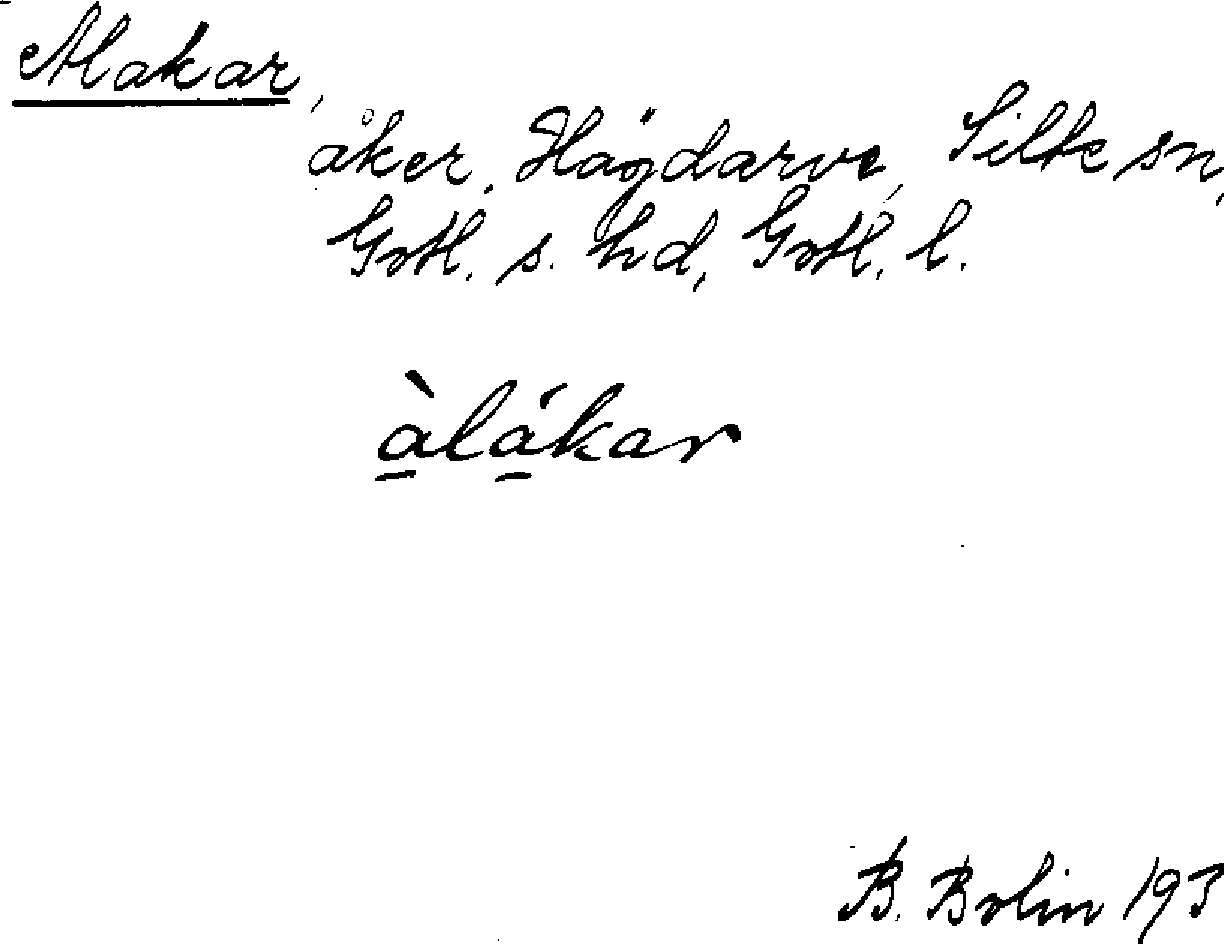 Alakar,
åker, Hägdarve, Silte sn,
Gotl. s. hd, Gotl. l.
àlákar
B. Bolin 193